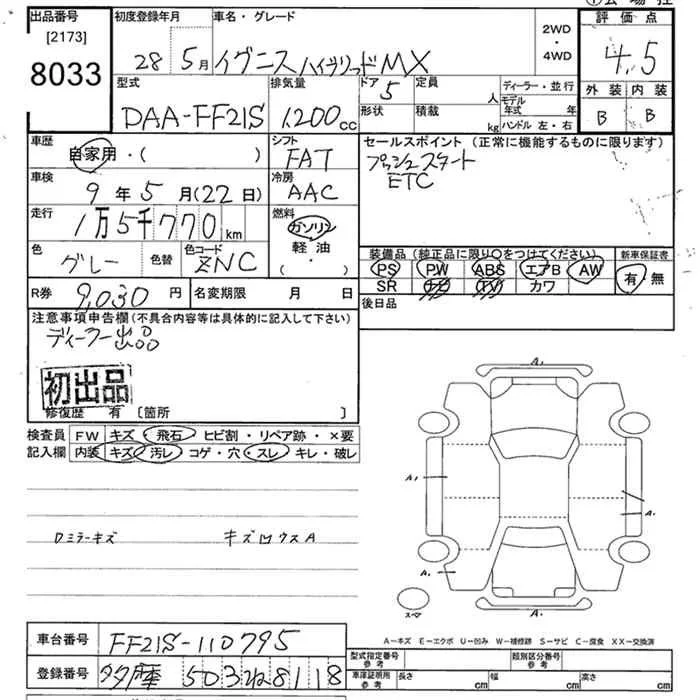 出品番号 初度登録年月 車名・グレード 評価点
[2173]
8033
28 5月 イグニス ハイブリッドMX 2WD・4WD 4.5
型式 排気量 ドア 定員 ディーラー・並行 外装 内装
DAA-FF21S 1,200cc 5 人 モデル年式 年 B B
形状 積載 kg ハンドル 左・右
車歴 自家用・( ) シフト FAT セールスポイント (正常に機能するものに限ります)
プッシュスタート
ETC
車検 9年5月(22日) 冷房 AAC
走行 1万5千770km 燃料 ガソリン
軽油
( ・ )
色 グレー 色替 色コード ZNC
装備品(純正品に限り○をつけてください) 新車保証書
PS PW ABS エアB AW 有 無
SR ナビ TV カワ
R券 9,030円 名変期限 月 日 後日品
注意事項申告欄(不具合内容等は具体的に記入して下さい)
ディーラー出品
初出品
修復歴 有 [箇所 ]
検査員 FW キズ・飛石 ヒビ割・リペア跡・×要
記入欄 内装 キズ・汚レ コゲ・穴・スレ キレ・破レ
ロミラーキズ キズ凹ウスA
A.
A.
A.
A.
A.
スマ
A-キズ E-エクボ U-凹み W-補修跡 S-サビ C-腐食 XX-交換済
車台番号 FF21S-110795
型式指定番号 参考 類別区分番号 参考
登録番号 多摩 503 ね 8118
車庫証明用 参考 長さ cm 幅 cm 高さ cm